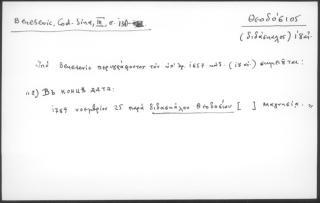 Benešević, Cod. Sina, III, σ. 130
Θεοδόσιος
(διδάσκαλος) ιη΄ αι.
Ὑπὸ Benešević περιγράφοντος τὸν ὑπ' ἀρ. 1657 κώδ. (ιη αἰ.) σημειοῦται:
"2) Въ концѣ дата:
1784 νοεμβρίου 25 παρὰ διδασκάλου Θεοδοσίου [ ] μαγνησία. "